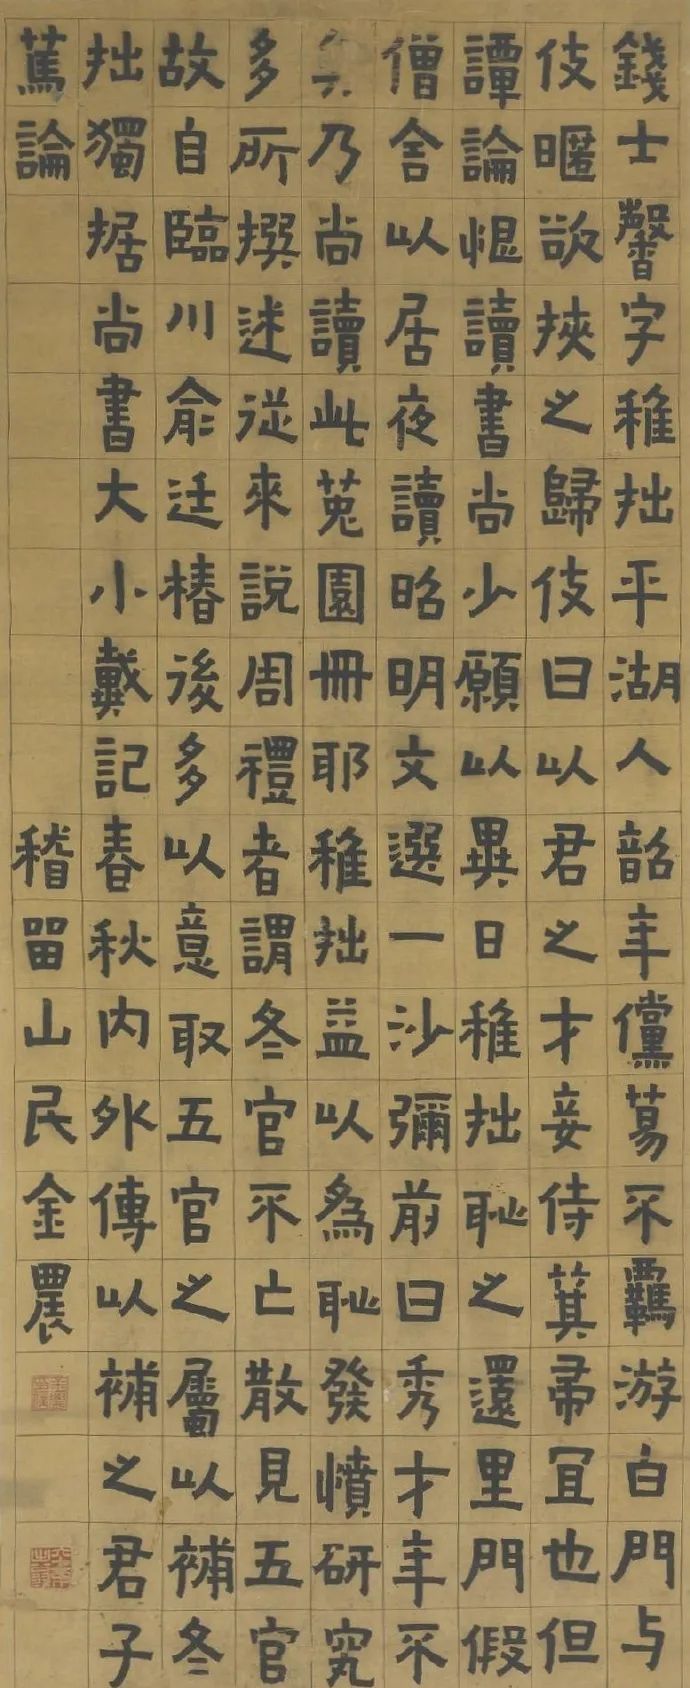 錢士馨字稚拙平湖人韶年儻蕩不羈游白門与
伎暱欲挾之歸伎曰以君之才妾侍萁帚冝也但
譚論愠讀書尚少願以異日稚拙恥之還里門假
僧舍以居夜讀昭明文選一沙彌前曰秀才年不
乃尚讀此菟園冊耶稚拙益以為恥發憤研究
多所撰述從來說周禮者謂冬官不亡散見五官
故自臨川俞廷椿後多以意取五官之屬以補冬
拙獨据尚書大小戴記春秋内外傳以補之君子
篤論
稽留山民金農